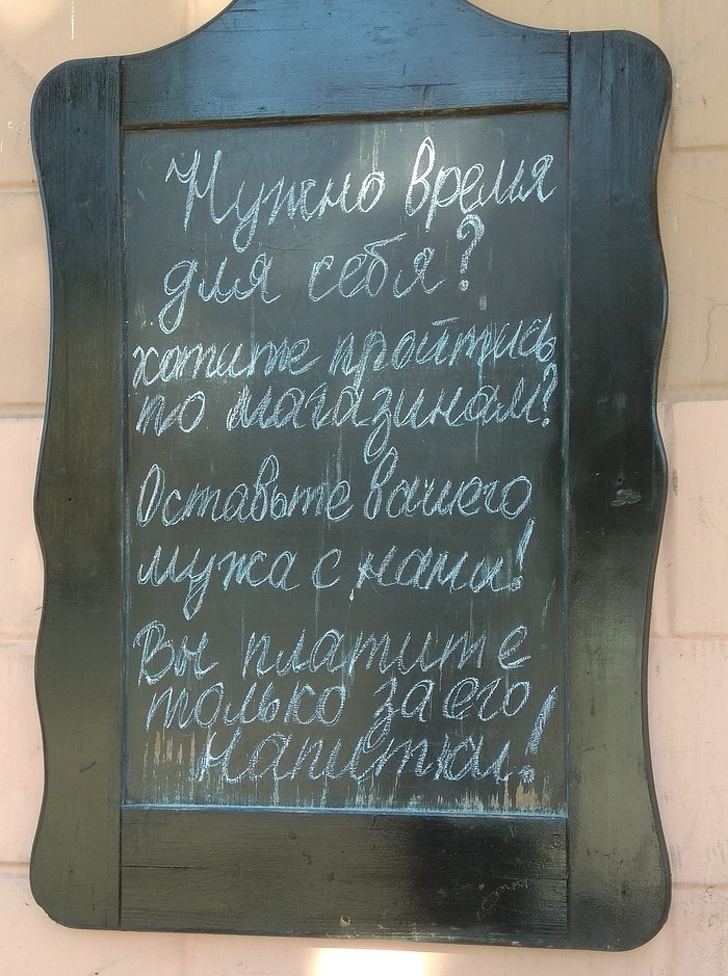 Нужно время
для себя?
хотите пройтись
по магазинам?
Оставьте вашего
мужа с нами!
Вы платите
только за его
напитки!